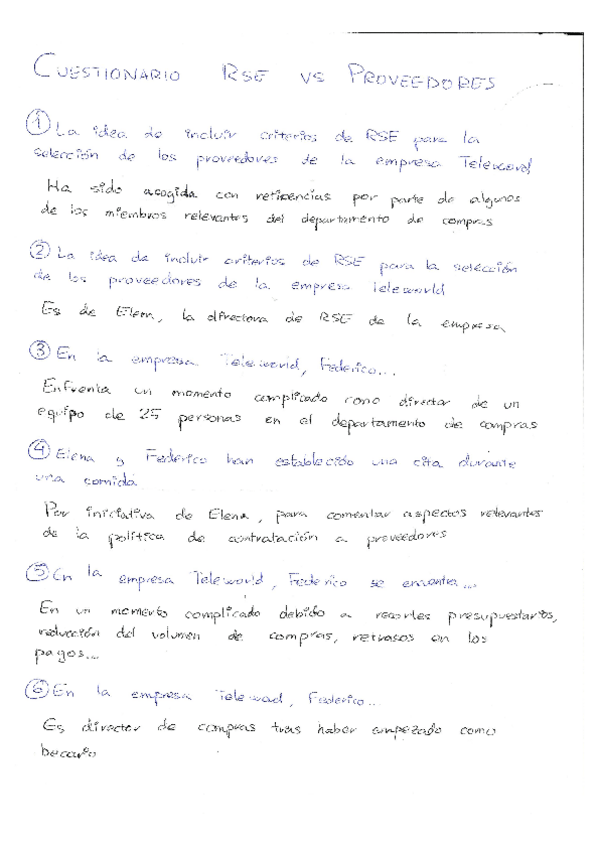 CUESTIONARIO RSE VS PROVEEDORES
① La idea de incluir criterios de RSE para la
selección de los proveedores de la empresa Teleword
Ha sido acogida con reticencias por parte de algunos
de los miembros relevantes del departamento de compras
② La idea de incluir criterios de RSE para la selección
de los proveedores de la empresa Teleworld
Es de Elena, la directora de RSE de la empresa
③ En la empresa Teleworld, Federico...
Enfrenta un momento complicado como director de un
equipo de 25 personas en el departamento de compras
④ Elena y Federico han establecido una cita durante
una comida
Por iniciativa de Elena, para comentar aspectos relevantes
de la política de contratación a proveedores
⑤ En la empresa Teleworld, Federico se encuentra...
En un momento complicado debido a recortes presupuestarios,
reducción del volumen de compras, retrasos en los
pagos...
⑥ En la empresa Telewad, Federico...
Es director de compras tras haber empezado como
becario